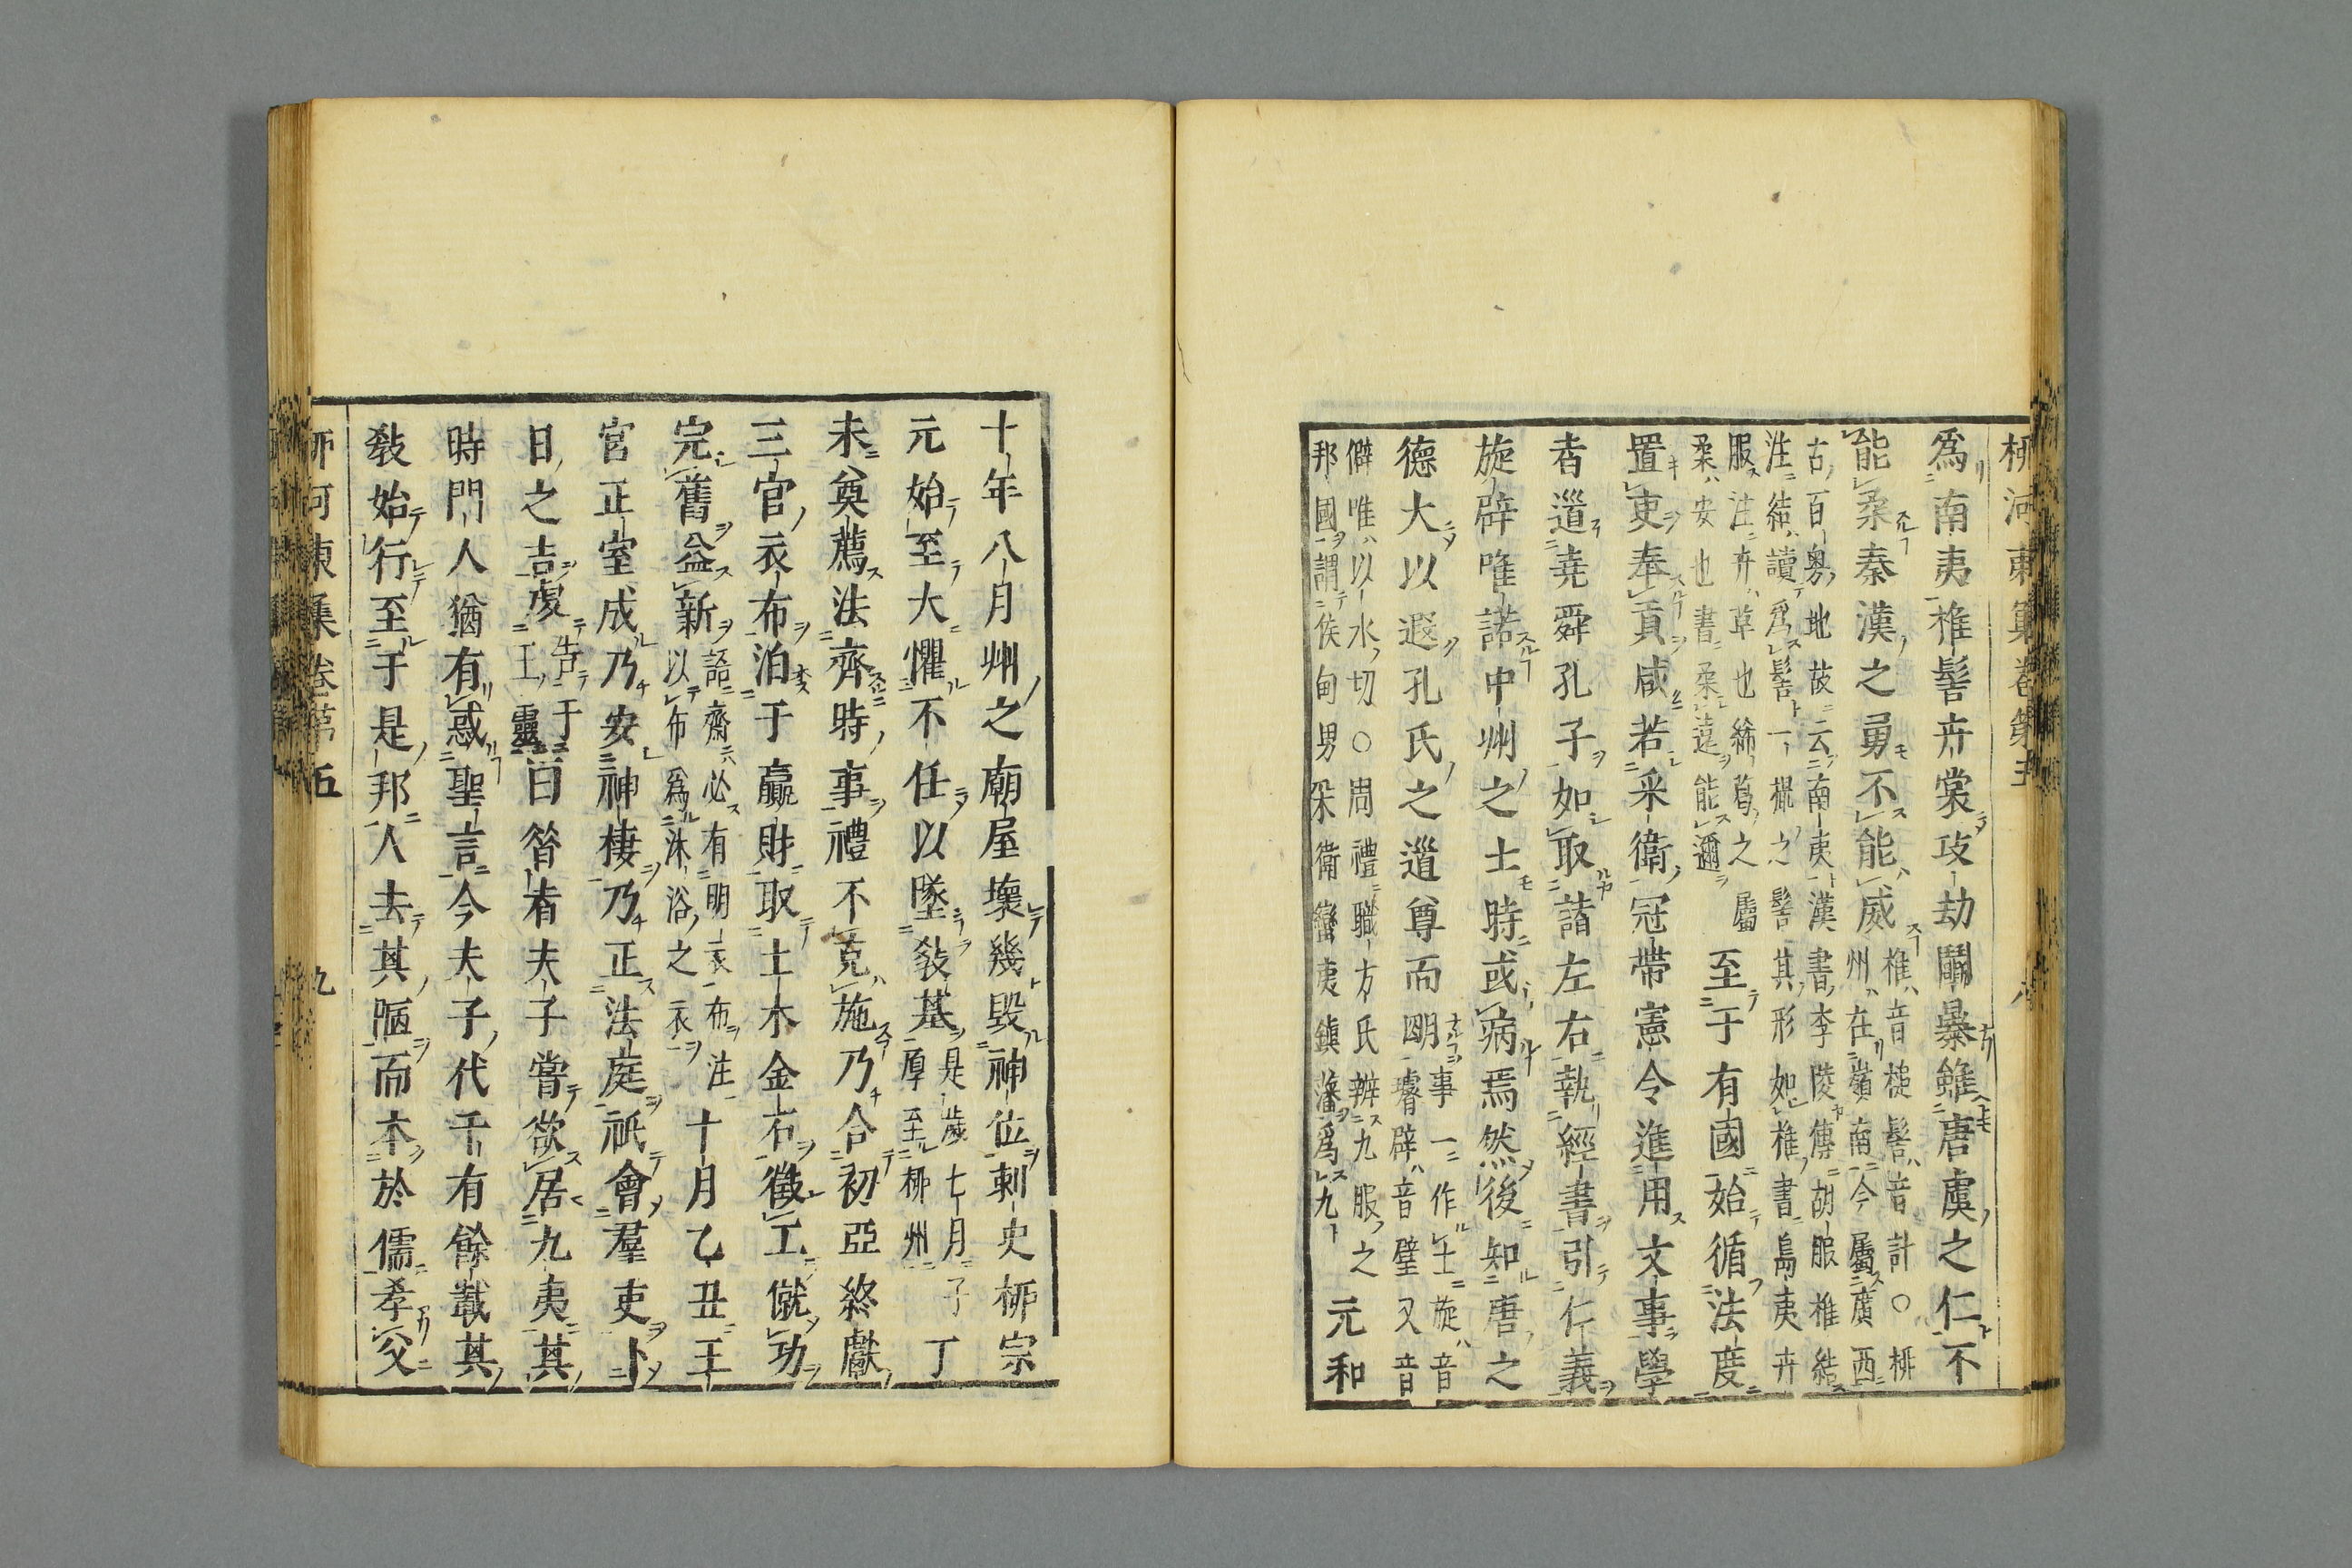 柳河東集卷第五 八
爲南夷椎髻卉裳攻劫鬭暴雖唐虞之仁不
能柔秦漢之勇不能威
椎音槌髻音計○柳
州在嶺南今屬廣西
古百粤地故云南夷漢書李陵傳胡服椎結
注結讀爲髻一撮之髻其形如椎書島夷卉
服注卉草也絺葛之屬
柔安也書柔遠能邇
至于有國始循法度
置吏奉貢咸若采衛冠帶憲令進用文事學
者道堯舜孔子如取諸左右執經書引仁義
旋辟唯諾中州之士時或病焉然後知唐之
德大以遐孔氏之道尊而明
事一作士旋音
璿辟音璧又音
僻唯以水切○周禮職方氏辨九服之
邦國謂侯甸男采衛蠻夷鎮藩爲九
元和
十年八月州之廟屋壞幾毀神位刺史柳宗
元始至大懼不任以墜教基
是歲七月子
厚至柳州
丁
未奠薦法齊時事禮不克施乃合初亞終獻
三官衣布洎于贏財取土木金石徵工僦功
完舊益新
語齋必有明衣布注
以布爲沐浴之衣
十月乙丑王
宮正室成乃安神棲乃正法庭祗會羣吏卜
日之吉虔
告于
王靈
曰昝者夫子嘗欲居九夷其
時門人猶有惑聖言今夫子代千有餘載其
教始行至于是邦人去其陋而本於儒孝父
柳河東集卷第五 九